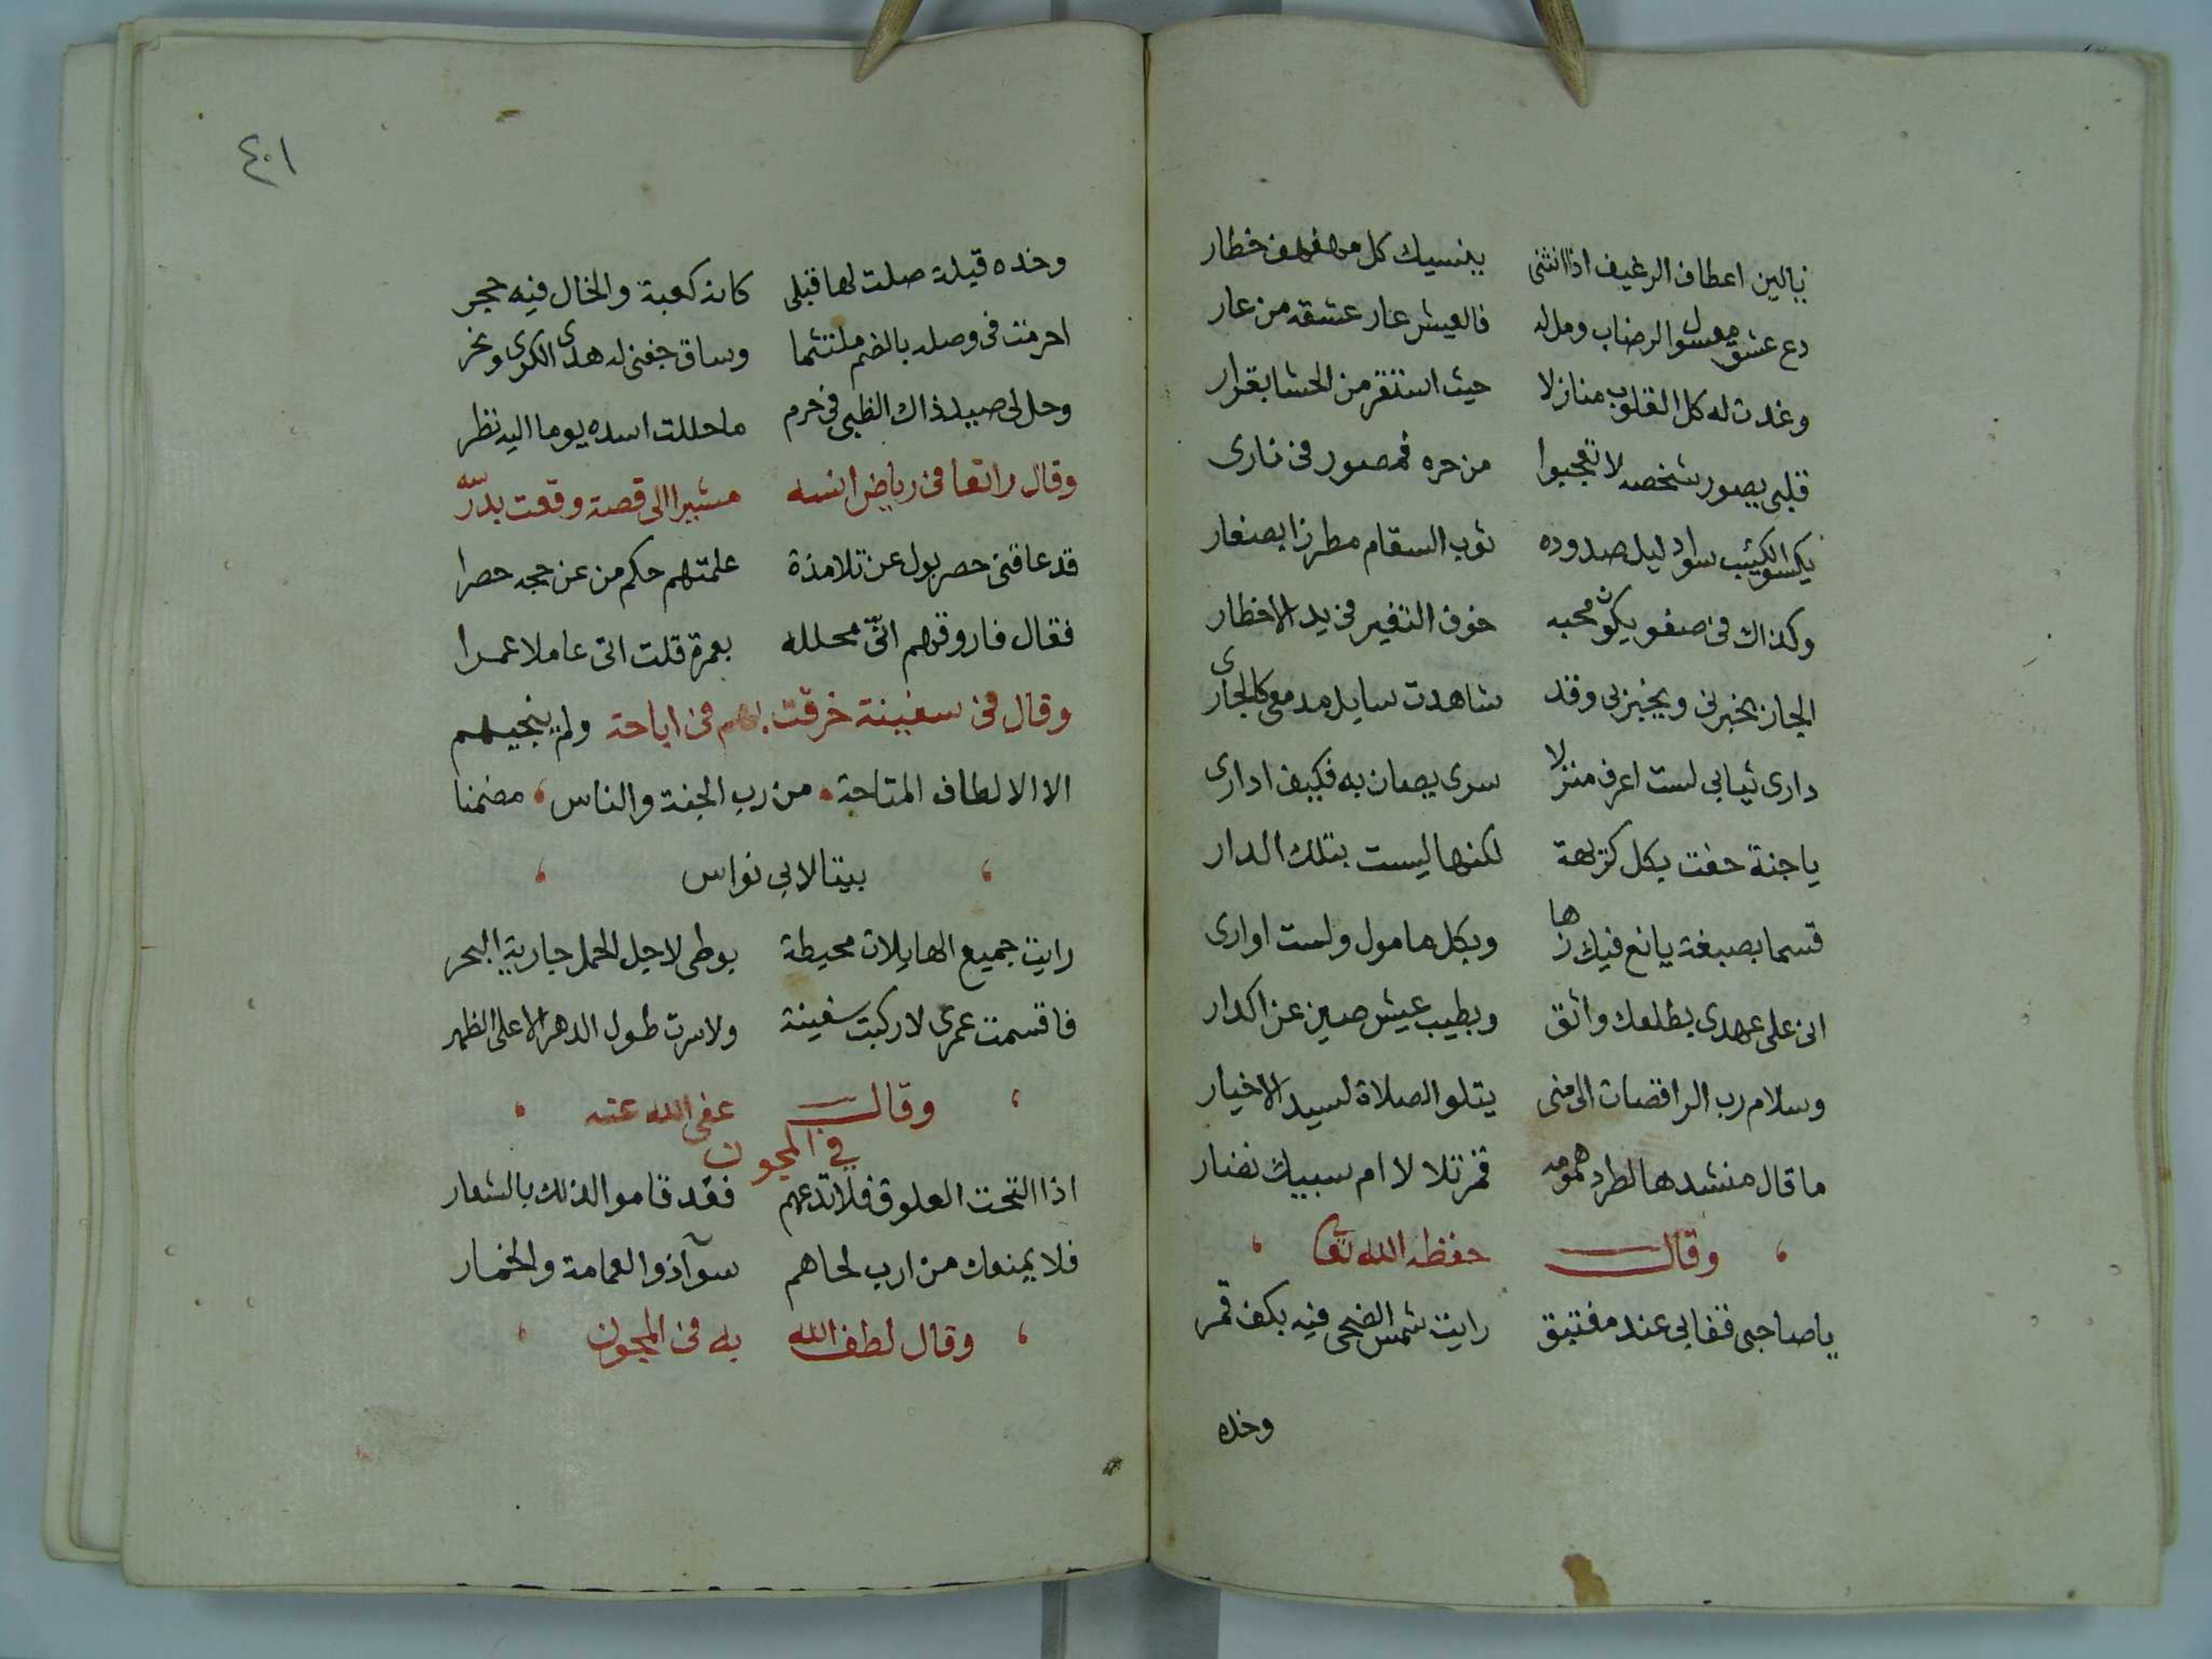 يالين اعطاف الرغيف اذا انثنى ينسيك كل مهفهف خطار
دع عشق معسول الرضاب ومل له فالعيش عار عشقه من عار
وغدت له كل القلوب منازلا حيث استقر من الحشا بقرار
قلبي يصور شخصه لا تعجبوا من حره فمصور في ناري
يكسو الكئيب سواد ليل صدوده ثوب السقام مطرزا بصغار
وكذاك في صفو يكون محبه خوف التغير في يد الاخطار
الجار يخبرني ويخبز بي وقد شاهدت سايل مدمعي كالجاري
داري ثيابي لست اعرف منزلا سرى يصان به فكيف اداري
يا جنة حفت بكل كريهة لكنها ليست بتلك الدار
قسما بصبغة يانع فيك زها وبكل مامول ولست اواري
اني على عهدي بطلعك واثق وبطيب عيش صين عن اكدار
وسلام رب الراقصات الى منى يتلو الصلاة لسيد الاخيار
ما قال منشدها لطرد همومه قمر تلالا ام سبيك نضار
وقال حفظه الله تعا
يا صاحبي قفا بي عند مفتبق رايت شمس الضحى فيه بكف قمر
وخده
٤٠١
وخده قبلة صلت لها قبلي كانه كعبة والخال فيه حجر
احرمت في وصله بالضم ملتثما وساق جفني له هدى الكرى ونحر
وحل لي صيد ذاك الظبي في حرم ما حللت اسده يوما اليه نظر
وقال راتعا في رياض انسه مشيرا الى قصة وقعت بدرسه
قد عاقني حصر بول عن تلامذة علمتهم حكم من عن حجه حصرا
فقال فاروقهم اني محلله بعمرة قلت اني عاملا عمرا
وقال في سفينة خرقت بهم في اباحة ولم ينجيهم
الا الالطاف المتاحة من رب الجنة والناس مضمنا
بيتا لابي نواس
رايت جميع الهايلات محيطة بوطى لاجل الحمل جارية البحر
فاقسمت عمري لا ركبت سفينة ولا سرت طول الدهر الا على الظهر
وقال عفى الله عنه
في المجون
اذا التحت العلوق فلا تدعهم فقد قاموا لذلك بالشعار
فلا يمنعك من ارب لحاهم سوآ ذو العمامة والخمار
وقال لطف الله به في المجون